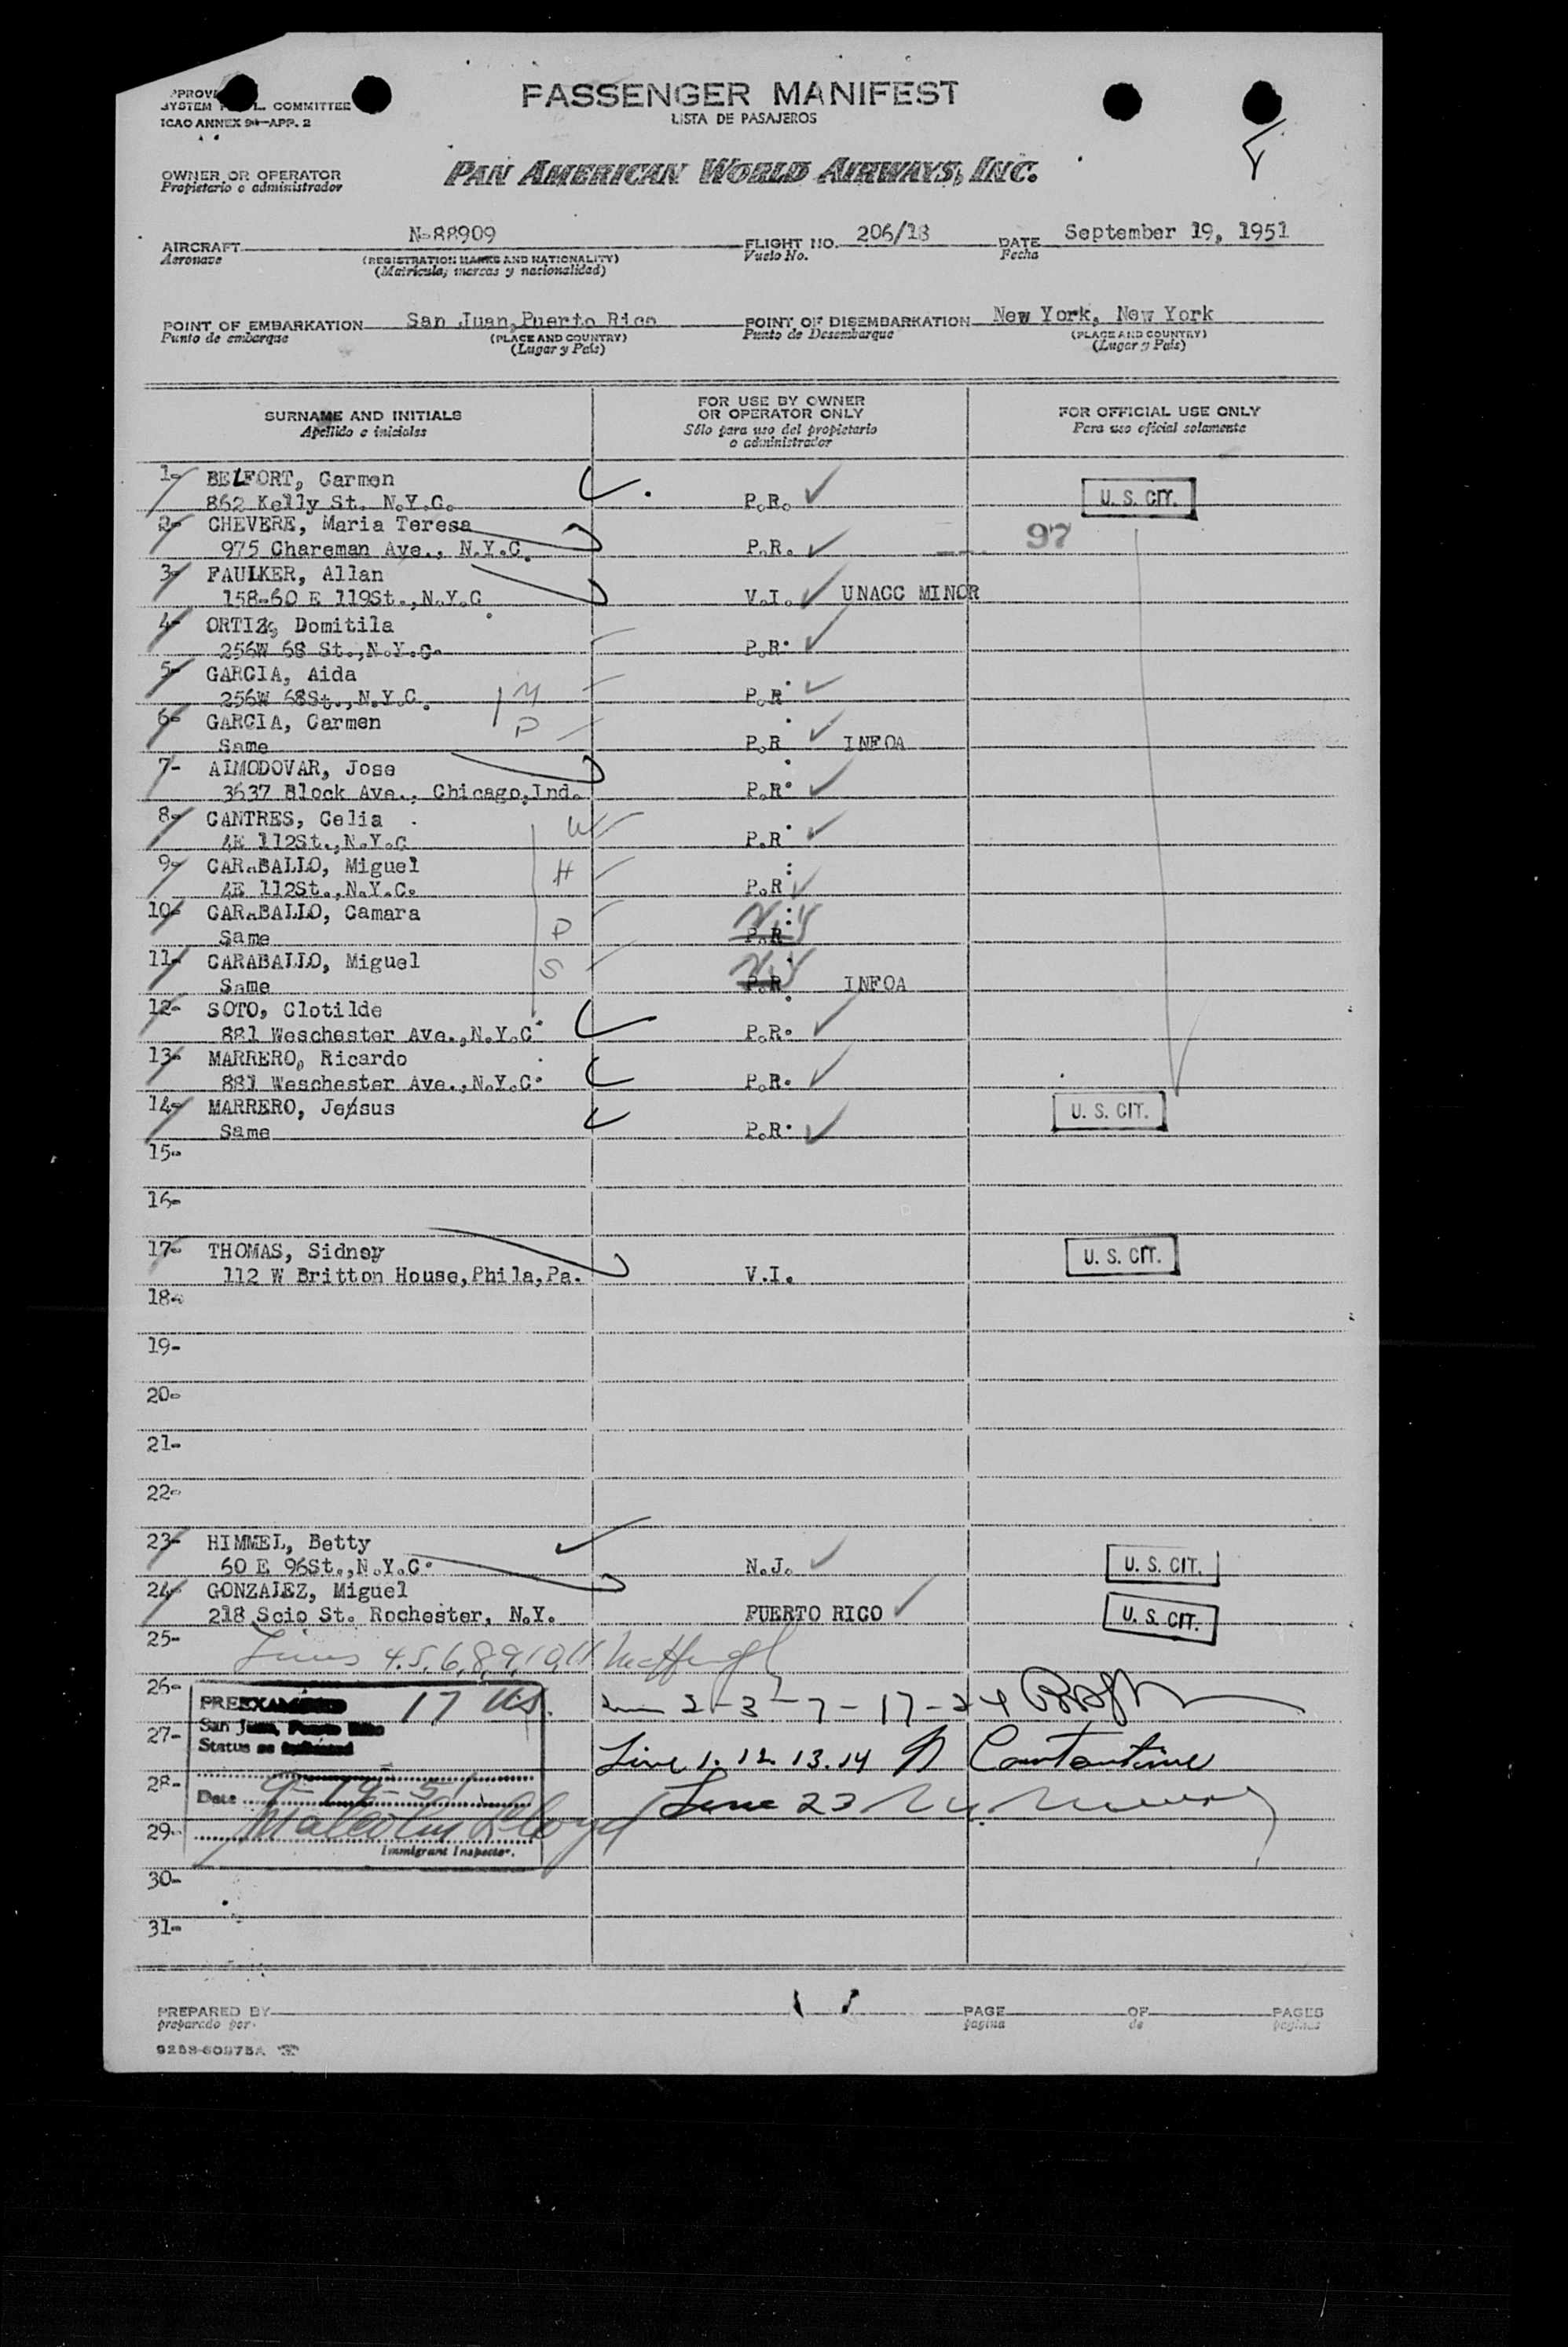 SYSTEM COMMITTEE
ICAO ANNEX 9—APP. 2
PASSENGER MANIFEST
LISTA DE PASAJEROS
OWNER OR OPERATOR
Propietario o administrador
PAN AMERICAN WORLD AIRWAYS, INC.
AIRCRAFT N-88909 FLIGHT NO. 206/18 DATE September 19, 1951
Aeronave (REGISTRATION MARKS AND NATIONALITY) Vuelo No. Fecha
(Matricula, marcas y nacionalidad)
POINT OF EMBARKATION San Juan, Puerto Rico POINT OF DISEMBARKATION New York, New York
Punto de embarque (PLACE AND COUNTRY) Punto de Desembarque (PLACE AND COUNTRY)
(Lugar y País) (Lugar y País)
SURNAME AND INITIALS FOR USE BY OWNER OR OPERATOR ONLY FOR OFFICIAL USE ONLY
Apellido e iniciales Sólo para uso del propietario o administrador Para uso oficial solamente
1- BELFORT, Carmen
862 Kelly St. N.Y.C. P.R. U. S. CIT.
2- CHEVERE, Maria Teresa 97
975 Chareman Ave., N.Y.C. P.R.
3- FAULKER, Allan
158-60 E 119St., N.Y.C. V.I. UNACC MINOR
4- ORTIZ, Domitila
256W 68 St., N.Y.C. P.R.
5- GARCIA, Aida
256W 68St., N.Y.C. M P.R.
6- GARCIA, Carmen D
Same P.R. INFOA
7- ALMODOVAR, Jose
3637 Block Ave., Chicago, Ind. P.R.
8- CANTRES, Celia W
4E 112St., N.Y.C. P.R.
9- CARABALLO, Miguel H
4E 112St., N.Y.C. P.R.
10- CARABALLO, Camara D N.Y
Same P.R.
11- CARABALLO, Miguel S N.Y
Same P.R. INFOA
12- SOTO, Clotilde
881 Weschester Ave., N.Y.C. P.R.
13- MARRERO, Ricardo
881 Weschester Ave., N.Y.C. P.R.
14- MARRERO, Jesus U. S. CIT.
Same P.R.
15-
16-
17- THOMAS, Sidney U. S. CIT.
112 W Britton House, Phila, Pa. V.I.
18-
19-
20-
21-
22-
23- HIMMEL, Betty
60 E 96St., N.Y.C. N.J. U. S. CIT.
24- GONZALEZ, Miguel
218 Scio St. Rochester, N.Y. PUERTO RICO U. S. CIT.
25- Lines 4.5.6.8.9.10.11
26- PREEXAMINED 17 US. 2-3-7-17-24
San Juan, Puerto Rico
27- Status as Indicated Line 1. 12. 13. 14 Constantine
28- Date 9-19-51 Line 23
29- Malcolm Lloyd
Immigrant Inspector.
30-
31-
PREPARED BY PAGE OF PAGES
preparado por pagina de paginas